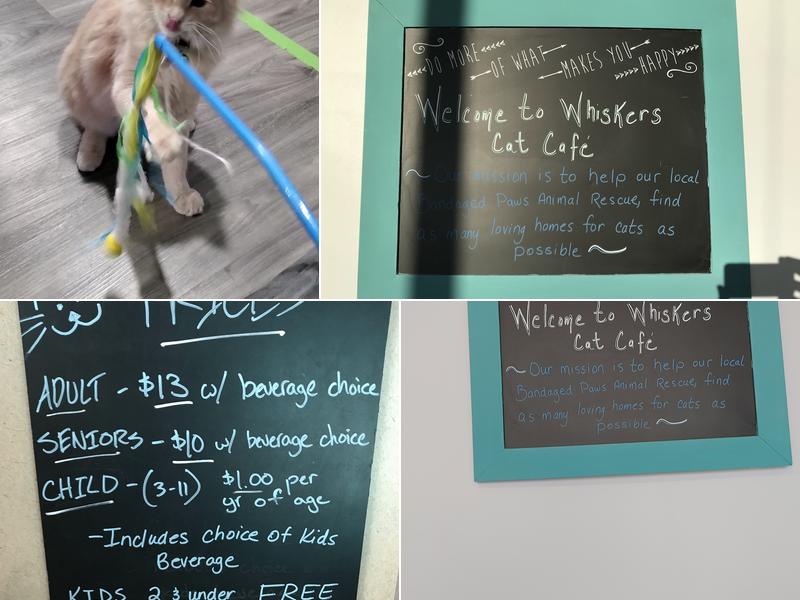 DO MORE OF WHAT MAKES YOU HAPPY
Welcome to Whiskers
Cat Café
Our mission is to help our local
Bandaged Paws Animal Rescue, find
as many loving homes for cats as
possible
ADULT - $13 w/ beverage choice
SENIORS - $10 w/ beverage choice
CHILD - (3-11) $1.00 per
yr of age
- Includes choice of Kids
Beverage
KIDS 2 & under FREE
Welcome to Whiskers
Cat Café
Our mission is to help our local
Bandaged Paws Animal Rescue, find
as many loving homes for cats as
possible